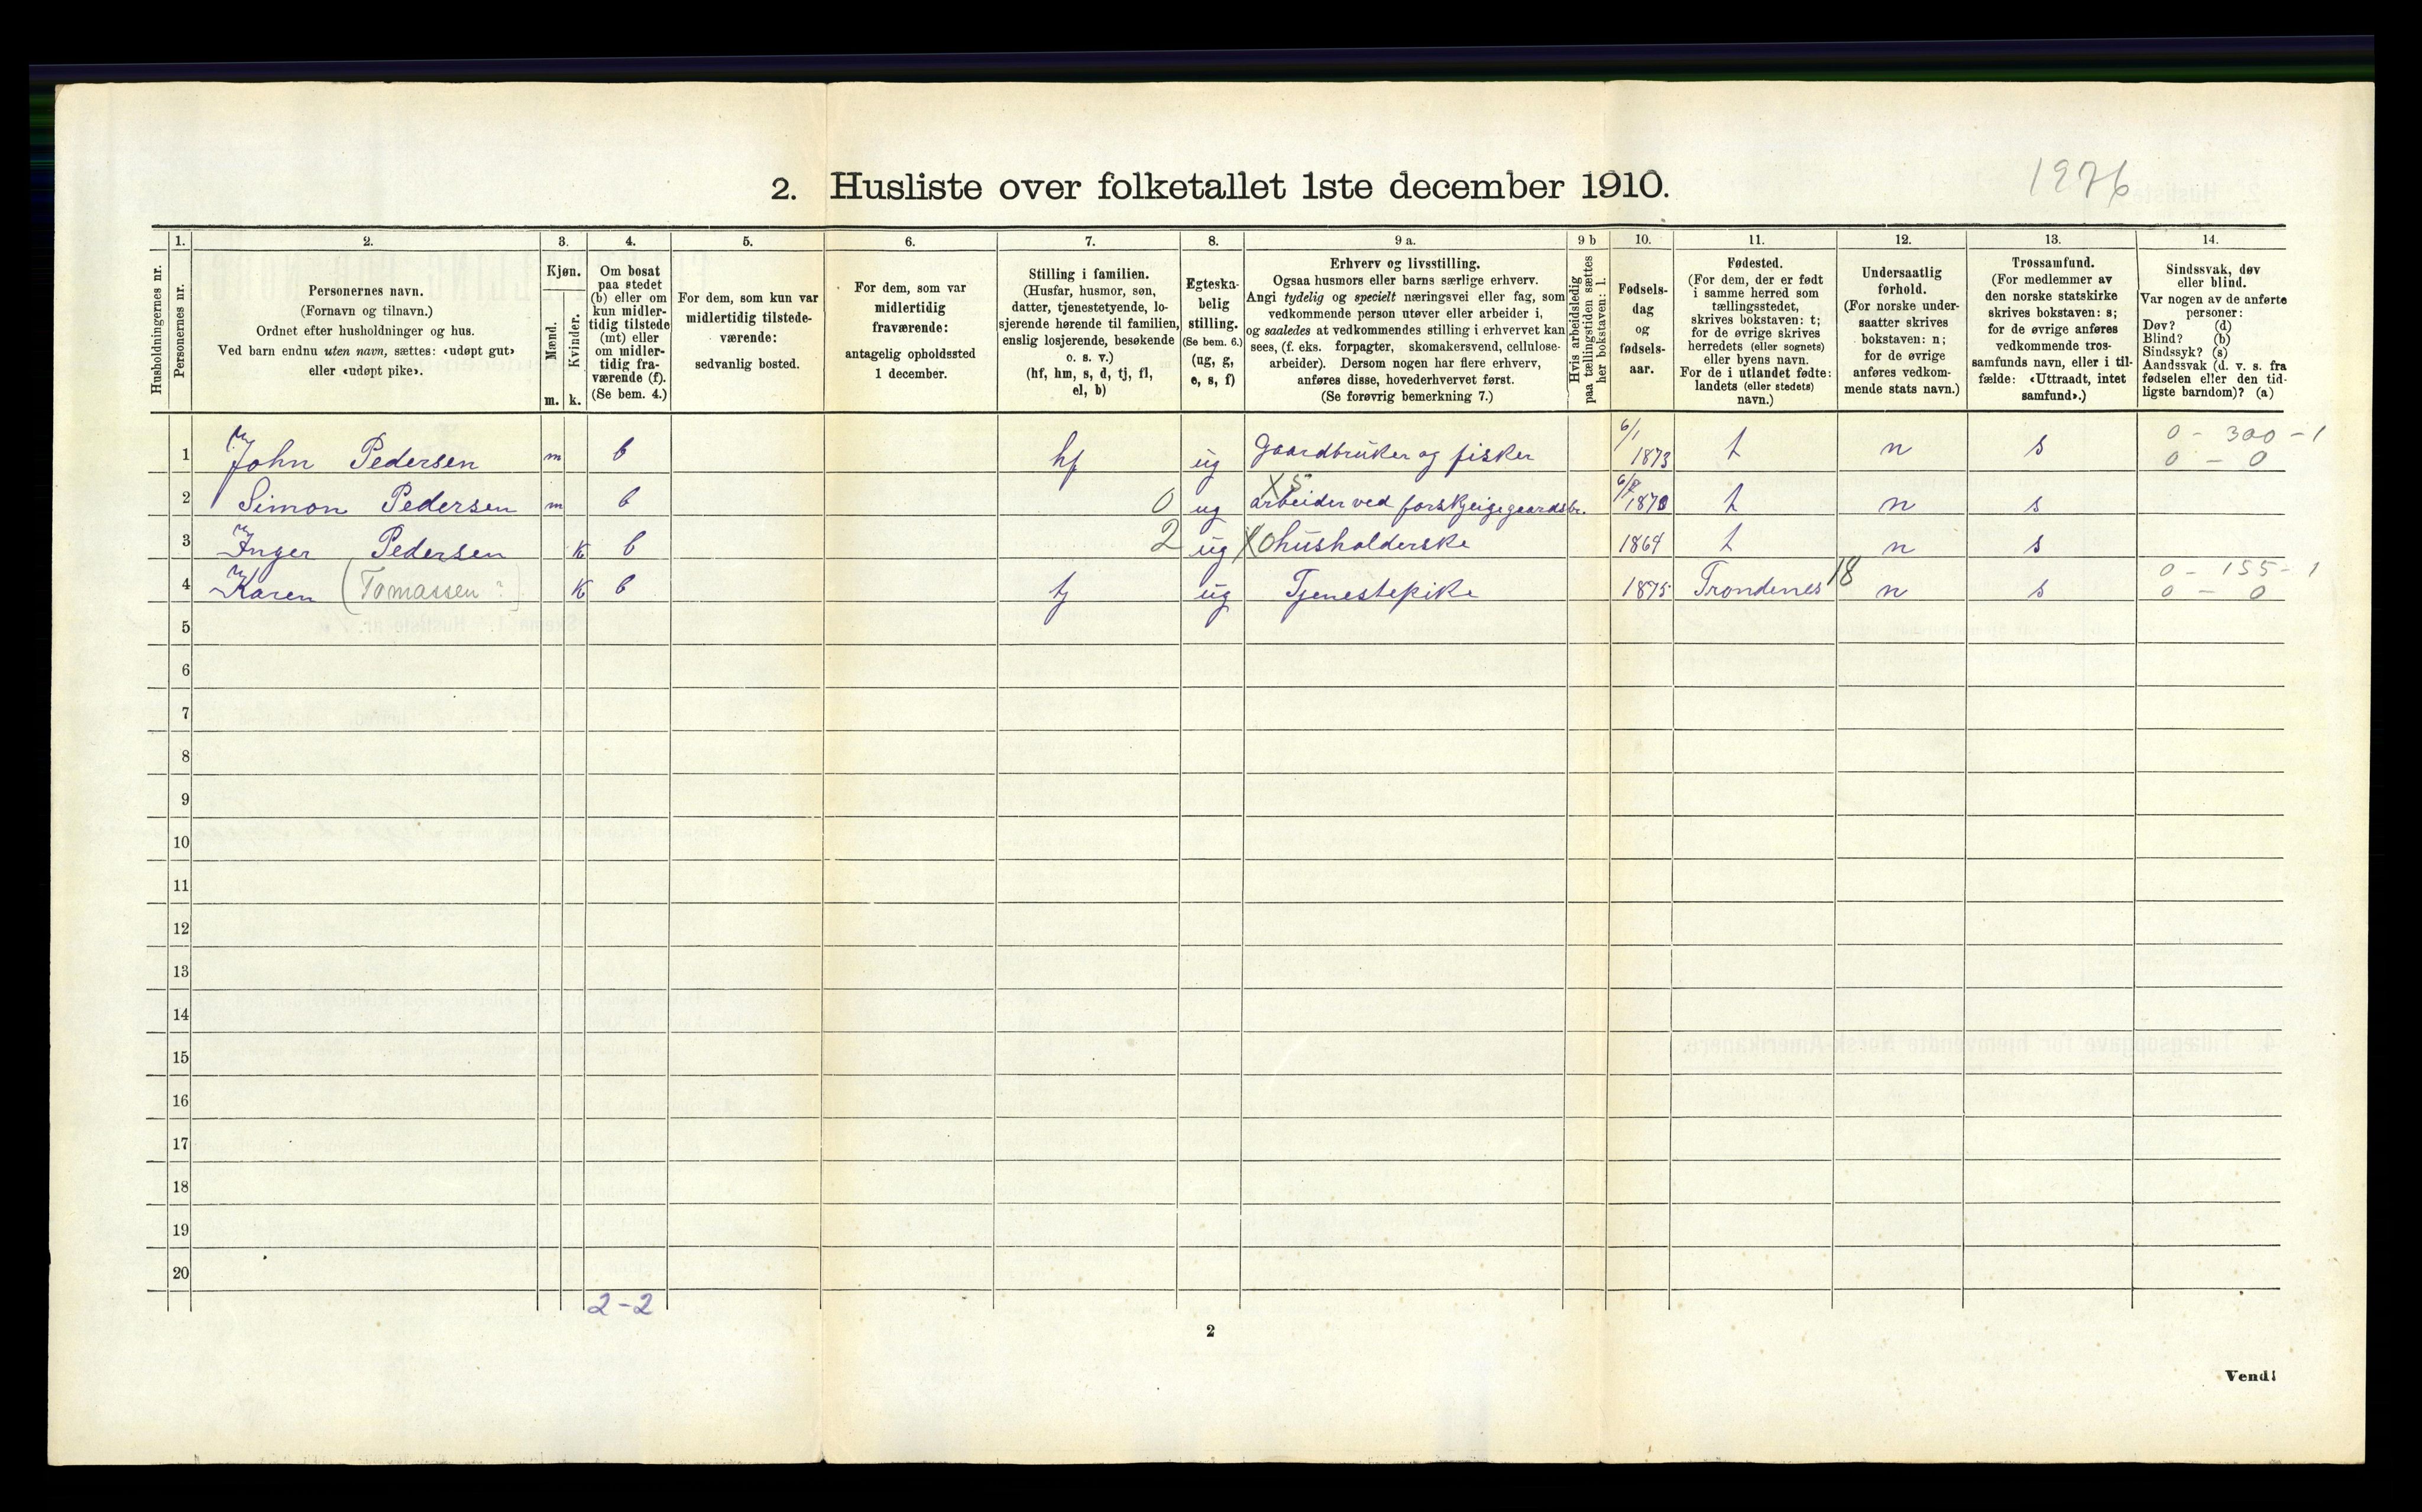 2. Husliste over folketallet 1ste december 1910.
1976
Husholdningernes nr.
1.
Personernes nr.
2.
Personernes navn.
(Fornavn og tilnavn.)
Ordnet efter husholdninger og hus.
Ved barn endnu uten navn, sættes: «udøpt gut»
eller «udøpt pike».
3.
Kjøn.
Mænd.
Kvinder.
m. k.
4.
Om bosat
paa stedet
(b) eller om
kun midler-
tidig tilstede
(mt) eller
om midler-
tidig fra-
værende (f).
(Se bem. 4.)
5.
For dem, som kun var
midlertidig tilstede-
værende:
sedvanlig bosted.
6.
For dem, som var
midlertidig
fraværende:
antagelig opholdssted
1 december.
7.
Stilling i familien.
(Husfar, husmor, søn,
datter, tjenestetyende, lo-
sjerende hørende til familien,
enslig losjerende, besøkende
o. s. v.)
(hf, hm, s, d, tj, fl,
el, b)
8.
Egteska-
belig
stilling.
(Se bem. 6.)
(ug, g,
e, s, f)
9 a.
Erhverv og livsstilling.
Ogsaa husmors eller barns særlige erhverv.
Angi tydelig og specielt næringsvei eller fag, som
vedkommende person utøver eller arbeider i,
og saaledes at vedkommendes stilling i erhvervet kan
sees, (f. eks. forpagter, skomakersvend, cellulose-
arbeider). Dersom nogen har flere erhverv,
anføres disse, hovederhvervet først.
(Se forøvrig bemerkning 7.)
9 b
Hvis arbeidsledig
paa tællingstiden sættes
her bokstaven: l.
10.
Fødsels-
dag
og
fødsels-
aar.
11.
Fødested.
(For dem, der er født
i samme herred som
tællingsstedet,
skrives bokstaven: t;
for de øvrige skrives
herredets (eller sognets)
eller byens navn.
For de i utlandet fødte:
landets (eller stedets)
navn.)
12.
Undersaatlig
forhold.
(For norske under-
saatter skrives
bokstaven: n;
for de øvrige
anføres vedkom-
mende stats navn.)
13.
Trossamfund.
(For medlemmer av
den norske statskirke
skrives bokstaven: s;
for de øvrige anføres
vedkommende tros-
samfunds navn, eller i til-
fælde: «Uttraadt, intet
samfund».)
14.
Sindssvak, døv
eller blind.
Var nogen av de anførte
personer:
Døv? (d)
Blind? (b)
Sindssyk? (s)
Aandssvak (d. v. s. fra
fødselen eller den tid-
ligste barndom)? (a)
1 John Pedersen m b hf ug Gaardbruker og fisker 6/1 1873 t n s 0 - 300 - 1
0 - 0
X 5
2 Simon Pedersen m b 0 ug arbeider ved 1870 t n s
3 Inger Pedersen k b 2 ug X0 husholderske 1864 t n s
4 Karen (Tomassen?) k b tj ug Tjenestepike 1875 Trondenes 18 n s 0 - 155 - 1
0 - 0
5
6
7
8
9
10
11
12
13
14
15
16
17
18
19
20
2-2
2
Vend!